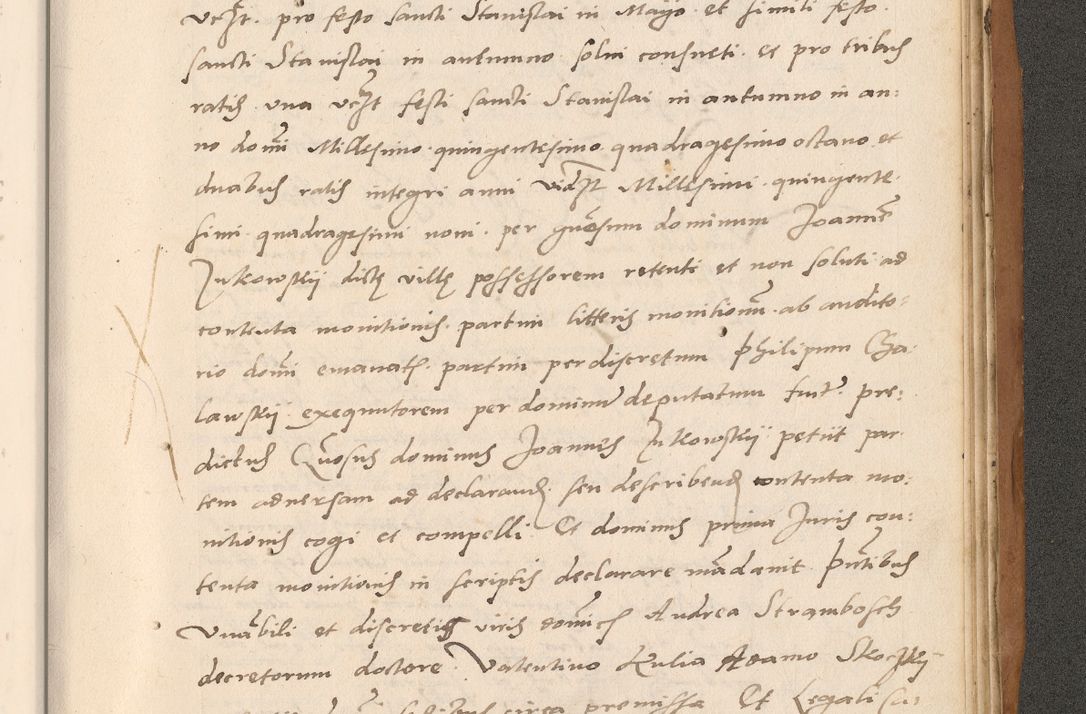 vczt. pro festo sancti Stanislai in Mayo et simili festo
sancti Stanislai in autumno solui consueti. et pro tribus
ratis vna vczt festi sancti Stanislai in autumno in an:
no domi Millesimo quingentesimo quadragesimo octauo et
duabus ratis integri anni vidzt Millesimi quingente.
simi quadragesimi noni per gnosum dominum Joannes
Jutkowskij dictę villę possessorem retenti et non soluti ad
contenta monitionis partim litteris monitionum ab audito:
rio domi emanat. partim per discretum philipum Ga.
lawskij exequutorem per dominum deputatum fuit. pre:
dictus Gnosus dominus Joannes Jutkowskij petiit par
tem aduersam ad declarand. seu describend contenta mo:
nitionis cogi et compelli Et dominus primi Juris con:
tenta monitionis in scriptis declarare mandauit pntibus
Vnabili et discretis viris domis Andrea Strambosch
decretorum doctore. Valentino Kulia Adamo Skockij
testibus circa premissa Et Legali